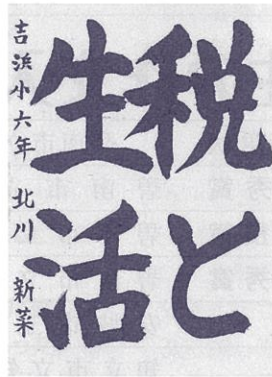 税と
生活
吉浜小六年 北川 新菜